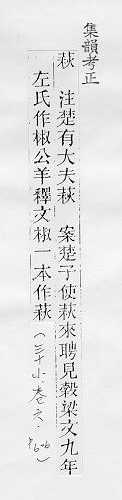 集韻考正
萩 注楚有大夫萩 案楚子使萩來聘見穀梁文九年
左氏作椒公羊釋文椒一本作萩(三十小.卷六.